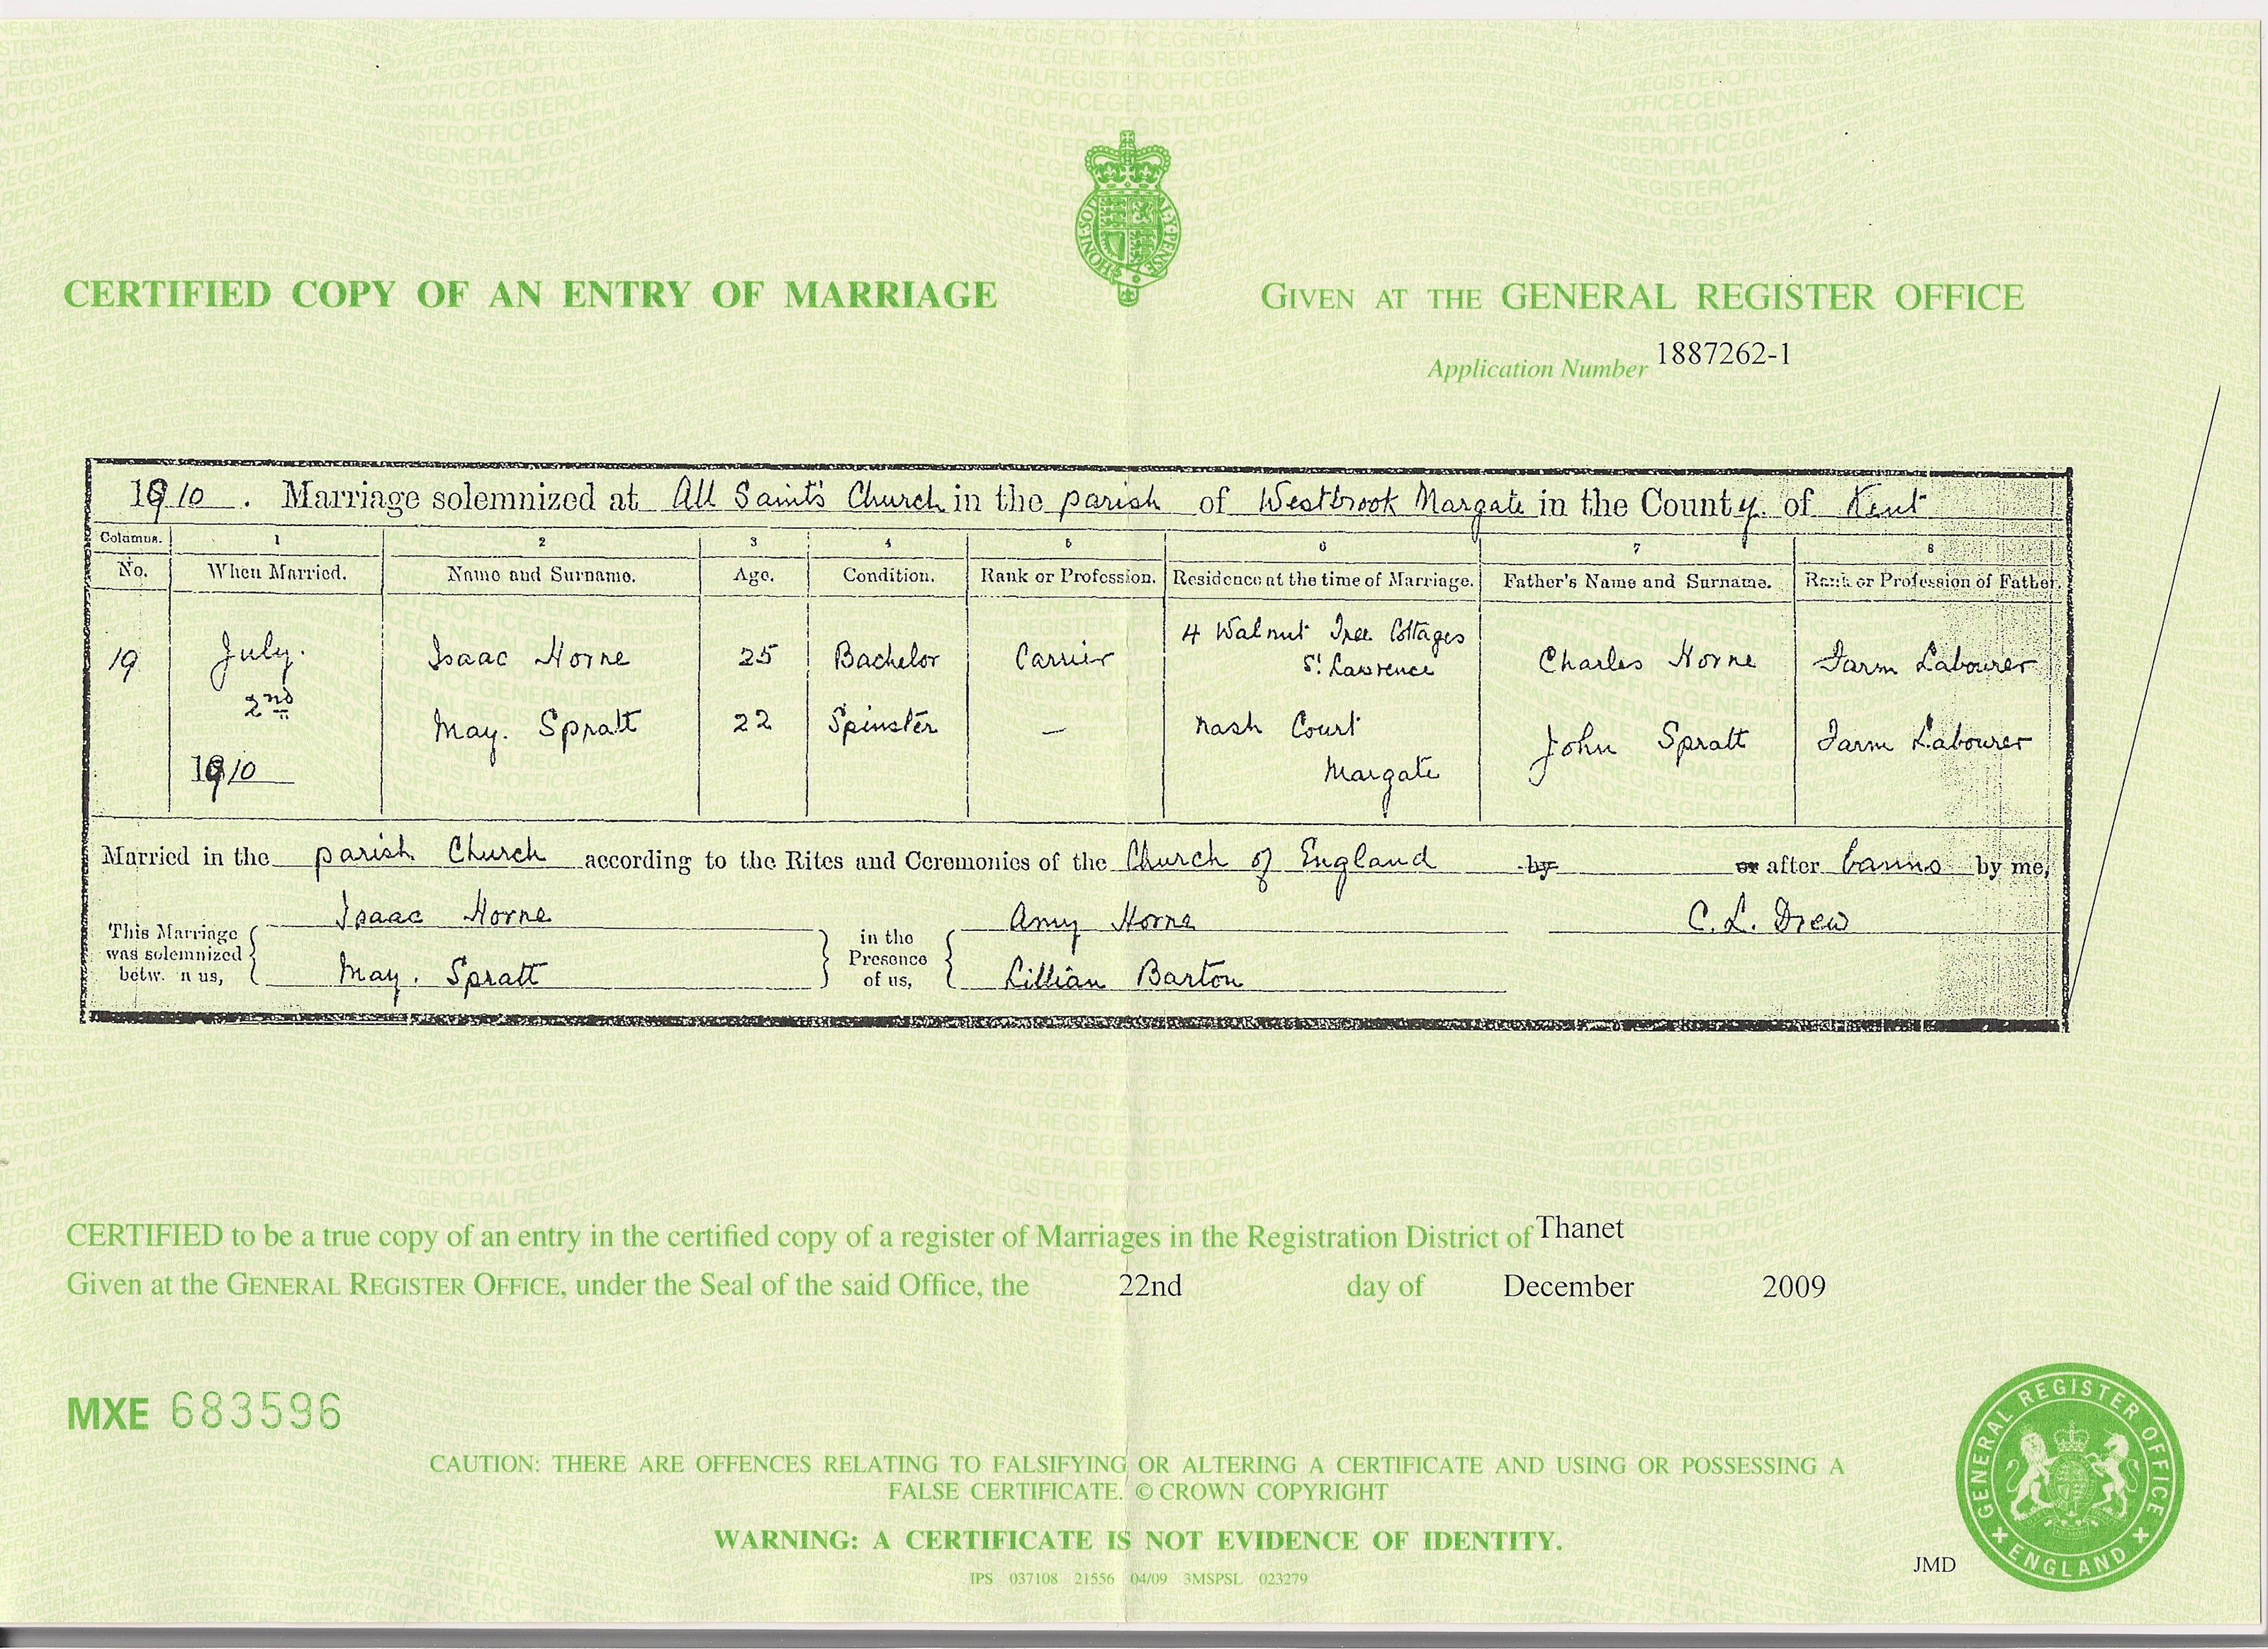 CERTIFIED COPY OF AN ENTRY OF MARRIAGE
HONI·SOI
AL·Y·PENSE
GIVEN AT THE GENERAL REGISTER OFFICE
Application Number 1887262-1
1910. Marriage solemnized at All Saints Church in the parish of Westbrook Margate in the County of Kent
Columns. 1 2 3 4 5 6 7 8
No. When Married. Name and Surname. Age. Condition. Rank or Profession. Residence at the time of Marriage. Father's Name and Surname. Rank or Profession of Father.
19 July 2nd 1910
Isaac Horne 25 Bachelor Carrier 4 Walnut Tree Cottages St. Lawrence Charles Horne Farm Labourer
May. Spratt 22 Spinster — Nash Court Margate John Spratt Farm Labourer
Married in the parish Church according to the Rites and Ceremonies of the Church of England by or after banns by me,
This Marriage was solemnized betw. n us,
Isaac Horne
May. Spratt
in the Presence of us,
Amy Horne
Lillian Barton
C. L. Drew
CERTIFIED to be a true copy of an entry in the certified copy of a register of Marriages in the Registration District of Thanet
Given at the GENERAL REGISTER OFFICE, under the Seal of the said Office, the 22nd day of December 2009
MXE 683596
CAUTION: THERE ARE OFFENCES RELATING TO FALSIFYING OR ALTERING A CERTIFICATE AND USING OR POSSESSING A
FALSE CERTIFICATE. © CROWN COPYRIGHT
WARNING: A CERTIFICATE IS NOT EVIDENCE OF IDENTITY.
IPS 037108 21556 04/09 3MSPSL 023279
JMD
GENERAL REGISTER OFFICE
ENGLAND